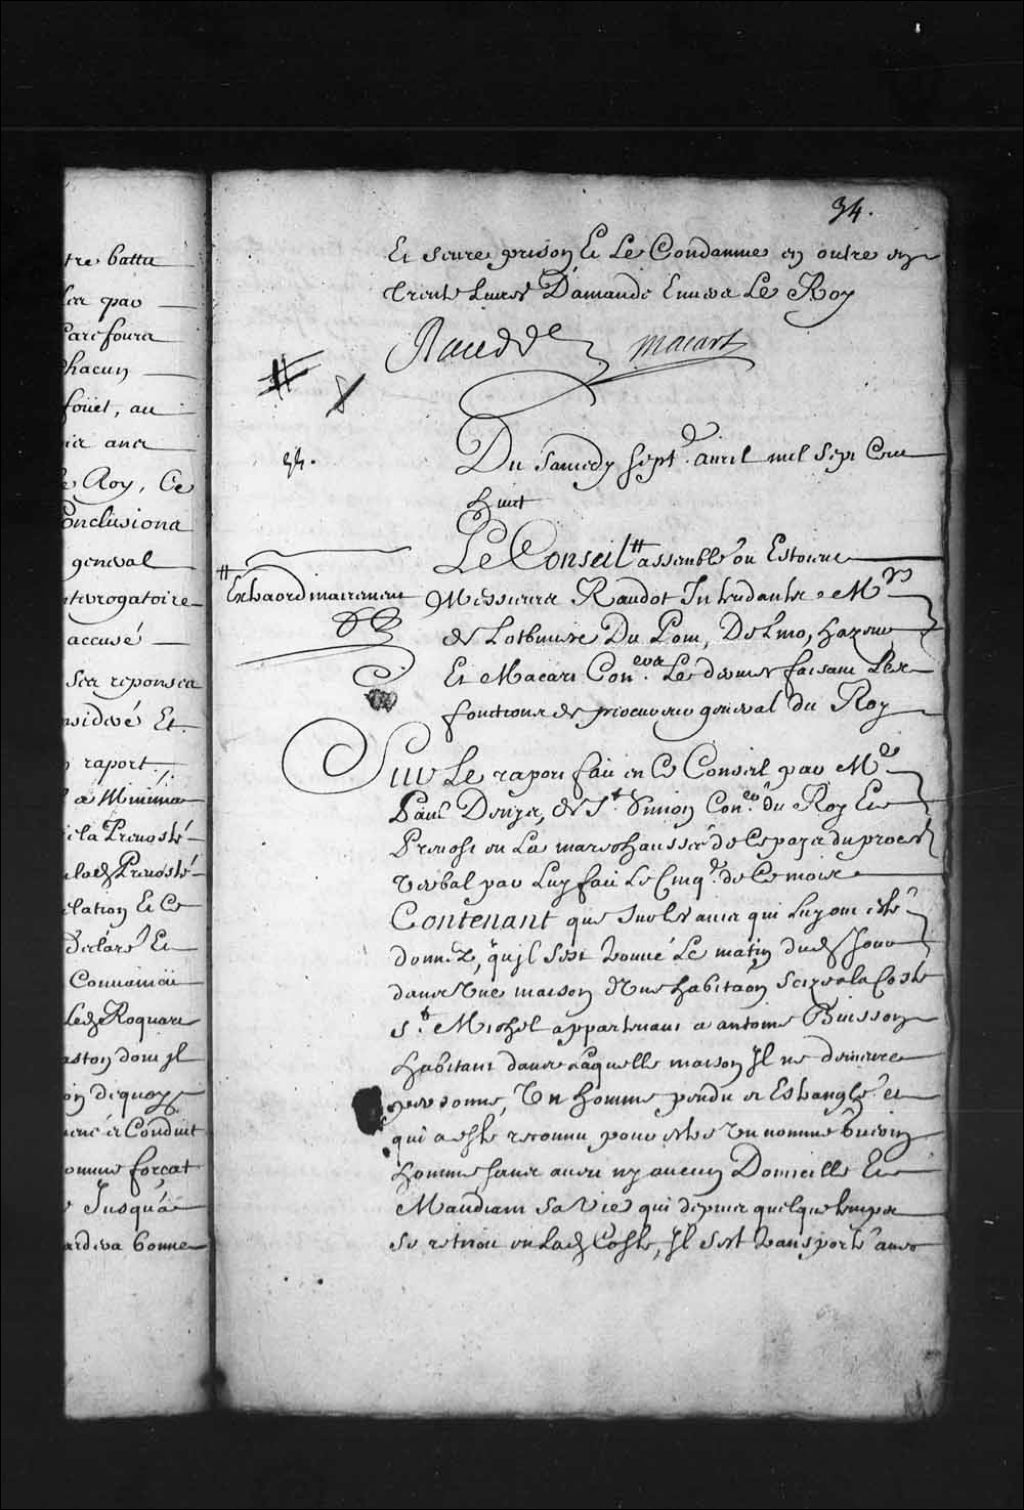 tre battu
les pav
Carefours
chacun
foüet, au
ois ans
Roy, Ce
Conclusions
general
nterrogatoire
accusé
Ses reponses
nsideré Et
raport
a Minima
la Prevosté
lad. Prevosté
elation Et Ce
Declaré Et
Convaincu
Led. Roquan
aston dont Jl
on dequoy
mené et Conduit
omme forcat
Jusqu'a
ardera bonne
34.
Et seure prison Et Le Condamne en outre en
trente Livres D'amande Envers Le Roy
Raudot Macart
34.
Du Samedy Sept.e avril mil Sept Cent
huit
Le Conseil # assemblé ou Estoient
# Extraordinairement
Messieurs Raudot Intendants Mrs
de Lotbiniere Du Pont, Delino, hazeur
Et Macart Con.ers Le dernier faisant Les
fonctions de procureur general du Roy
Sur Le raport fait en Ce Conseil par Me
Paul Denys, de St. Simon Con.er du Roy Et
Prevost en La mareschaussée de Ce pays du procez
Verbal par Luy fait Le Cinq.e de Ce mois
Contenant que Sur Les avis qui Luy ont esté
donnez, qu'jl s'est trouvé Le matin dud. Jour
dans Une maison d'Une habita͠on Scize a la Coste
St. Michel appartenant a antoine Buisson
habitant dans Laquelle maison Jl ne demeure
personne, Un homme pendu et Estranglé et
qui a esté reconnu pour estre Un nommé
homme sans aveu ny aucun Domicille Et
Mandiant Sa Vie qui depuis quelque temps
se retiroit en Lad. Coste, Jl s'est transporté avec